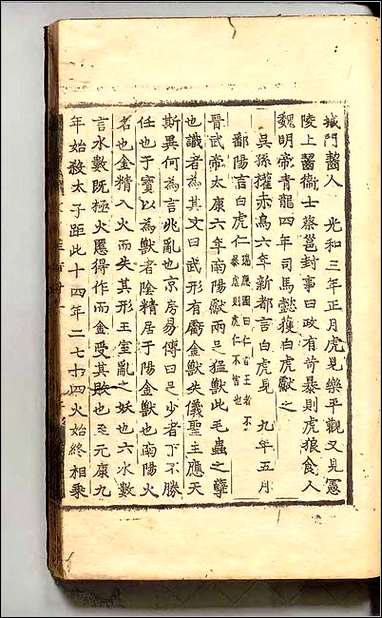 城門齧人　光和三年正月虎見樂平觀又見憲
陵上齧衛士蔡邕封事曰政有苛暴則虎狼食人
魏明帝青龍四年司馬懿獲白虎獻之
吳孫權赤烏六年新都言白虎見　九年五月
鄱陽言白虎仁 瑞應圖曰白虎仁者王者不暴虐則虎仁不害也
晉武帝太康六年南陽獻兩足猛獸此毛蟲之孽
也識者為其文曰武形有虧金獸失儀聖主應天
斯異何為言兆亂也京房易傳曰足少者下不勝
任也于寶以為獸者陰精居于陽金獸也南陽火
名也金精入火而失其形王室亂之妖也六水數
言水數既極火慝得作而金受其敗也至元康九
年始殺太子距此十四年二七十四火始終相乘